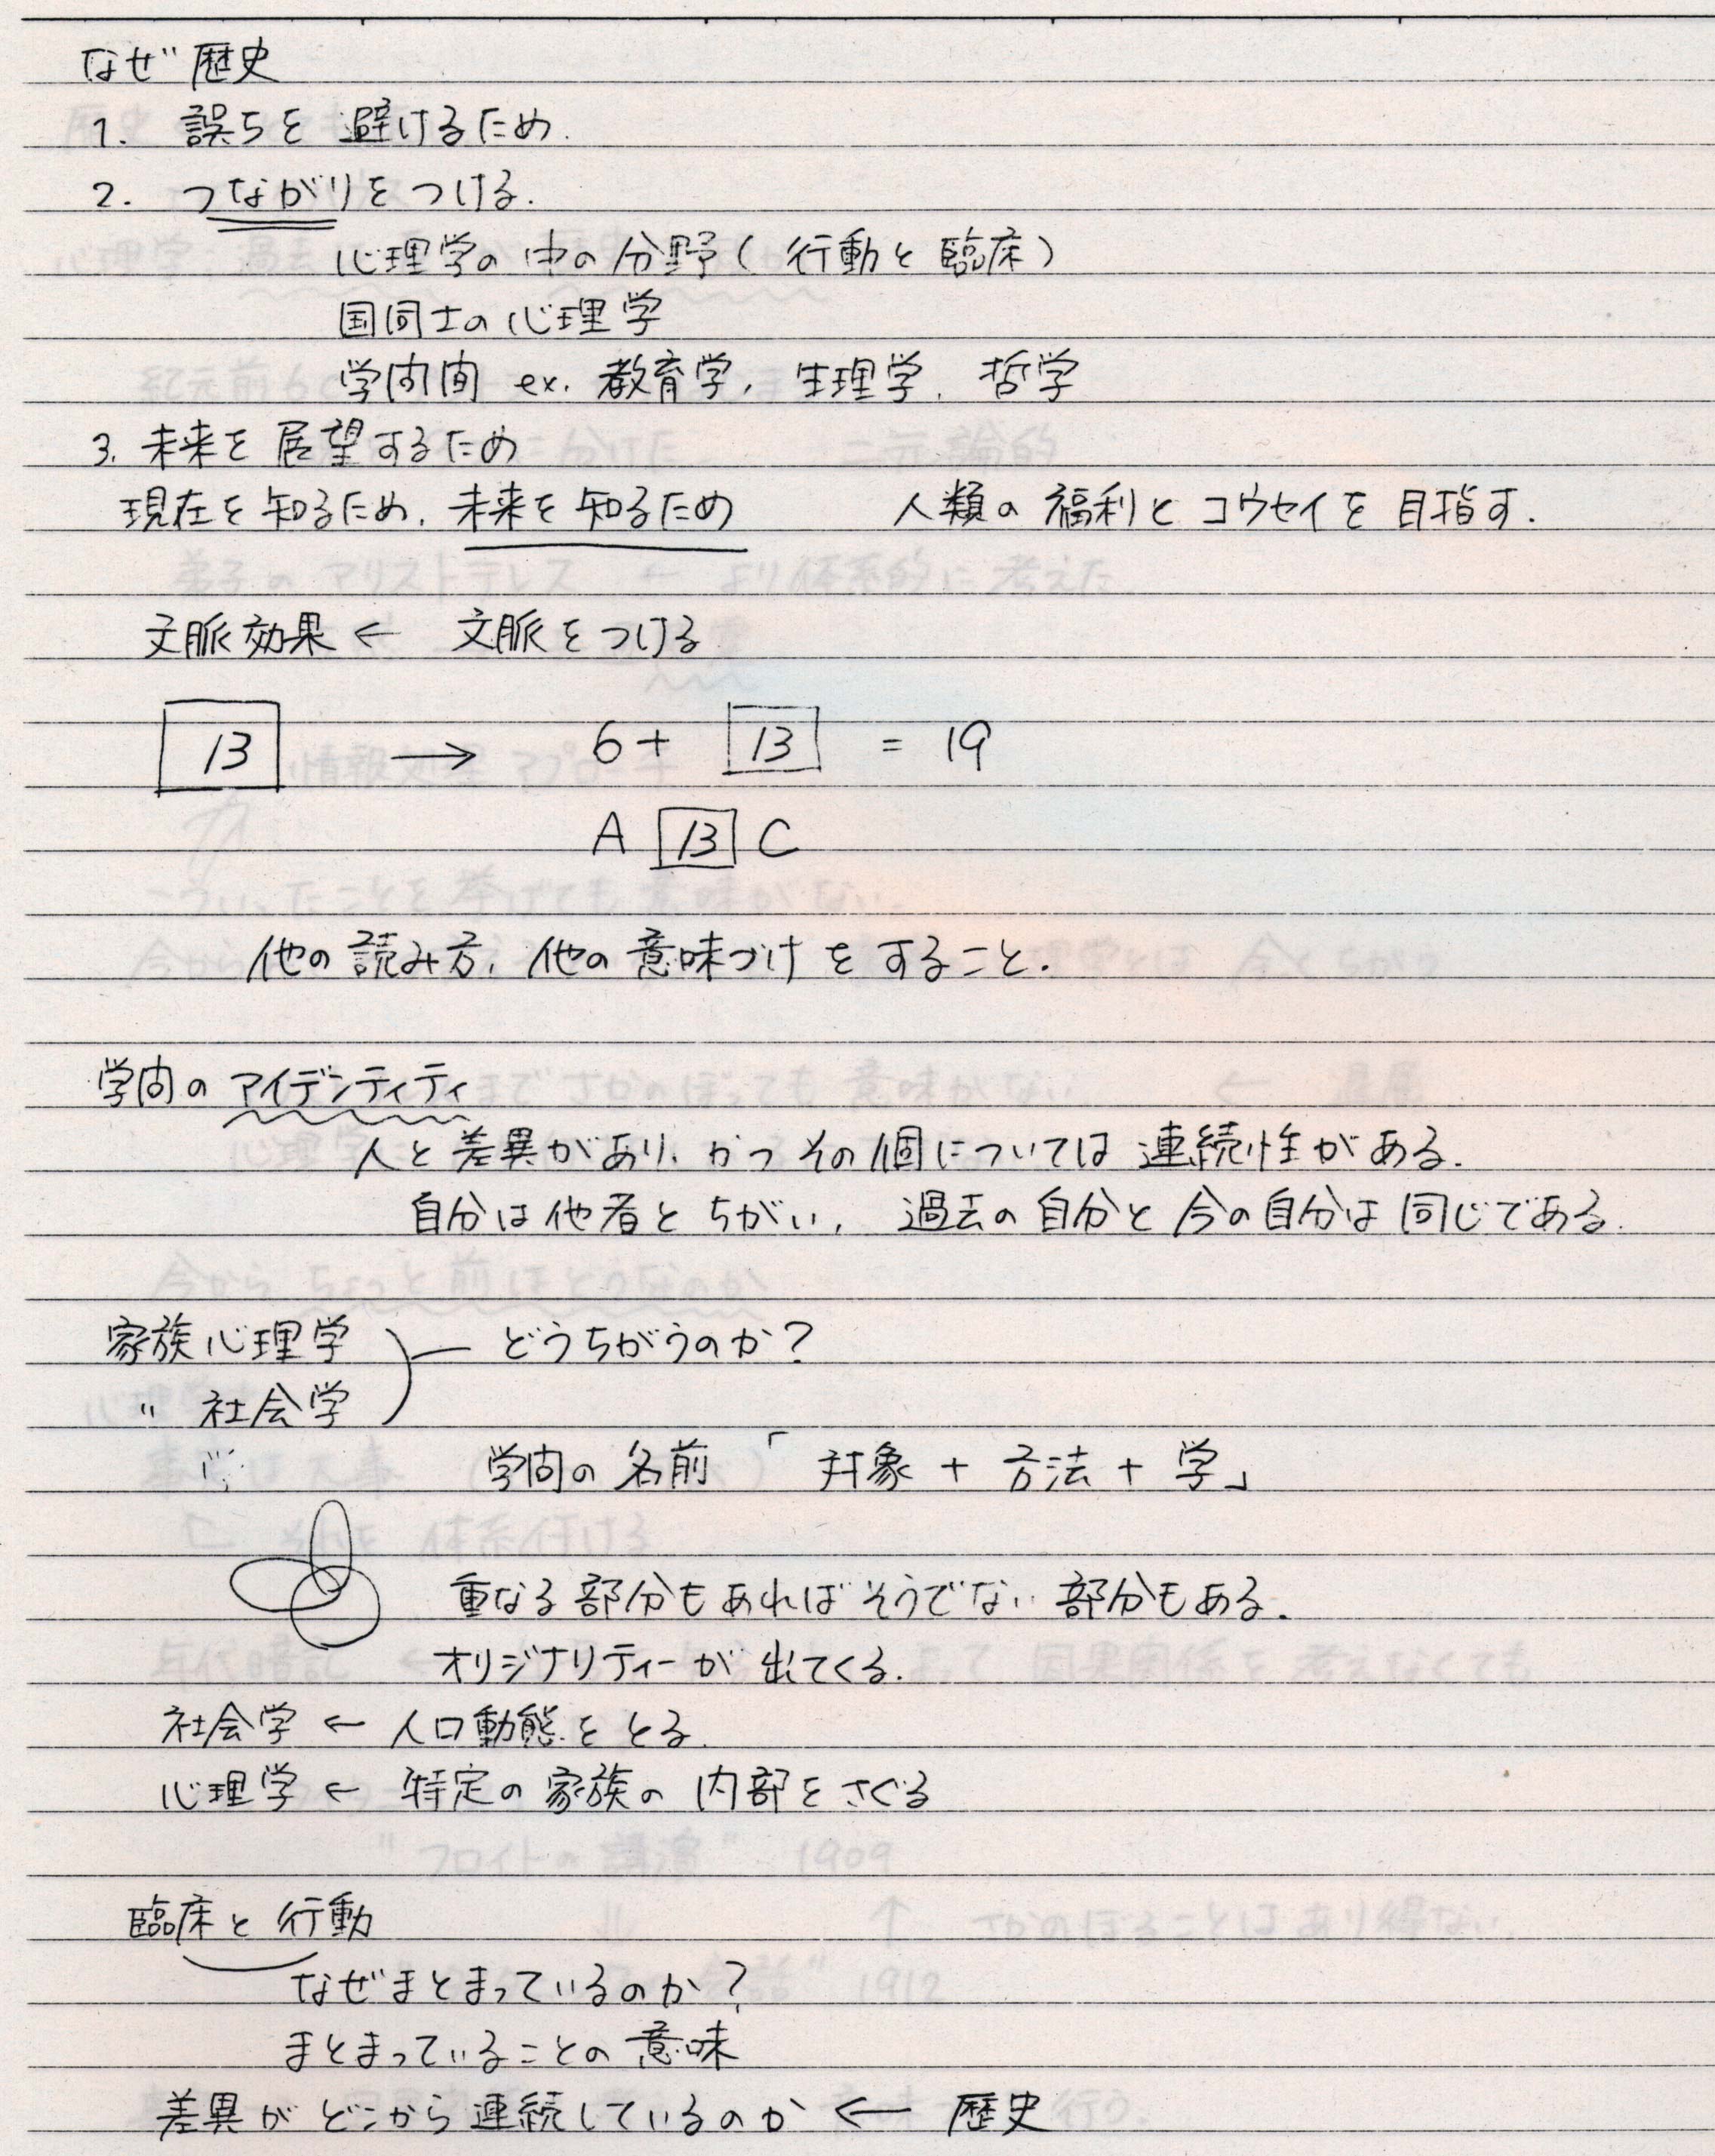 なぜ歴史
1. 誤ちを避けるため.
2. つながりをつける.
心理学の中の分野(行動と臨床)
国同士の心理学
学問間 ex. 教育学, 生理学, 哲学
3. 未来を展望するため
現在を知るため, 未来を知るため 人類の福利とコウセイを目指す.
文脈効果 ← 文脈をつける
13 → 6 + 13 = 19
A 13 C
他の読み方, 他の意味づけをすること.
学問のアイデンティティ
人と差異があり, かつその個については連続性がある.
自分は他者とちがい, 過去の自分と今の自分は同じである.
家族心理学 ー どうちがうのか?
〃 社会学
学問の名前「対象 + 方法 + 学」
重なる部分もあればそうでない部分もある.
オリジナリティーが出てくる.
社会学 ← 人口動態をとる.
心理学 ← 特定の家族の内部をさぐる
臨床と行動
なぜまとまっているのか?
まとまっていることの意味
差異がどこから連続しているのか ← 歴史